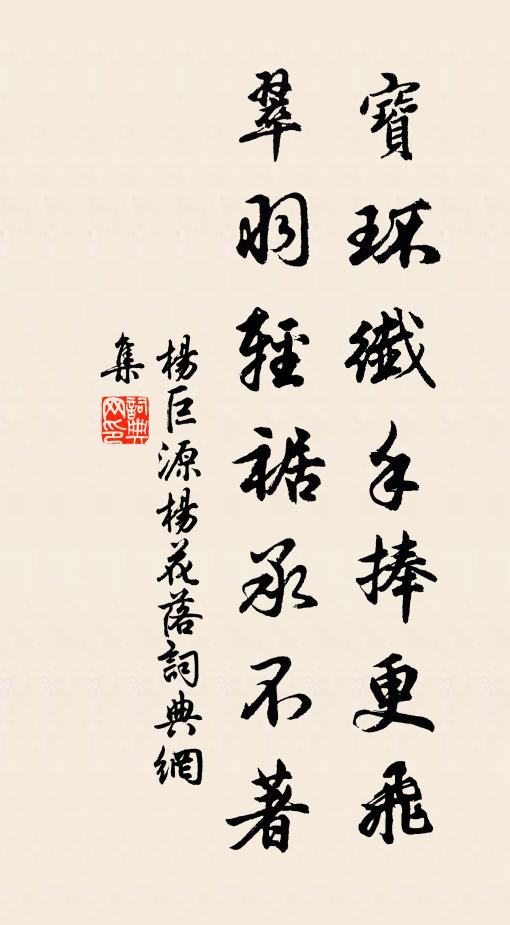 寶環纖手捧更飛
翠羽輕裾承不著
楊巨源楊花落詞典網
集
詞典網印